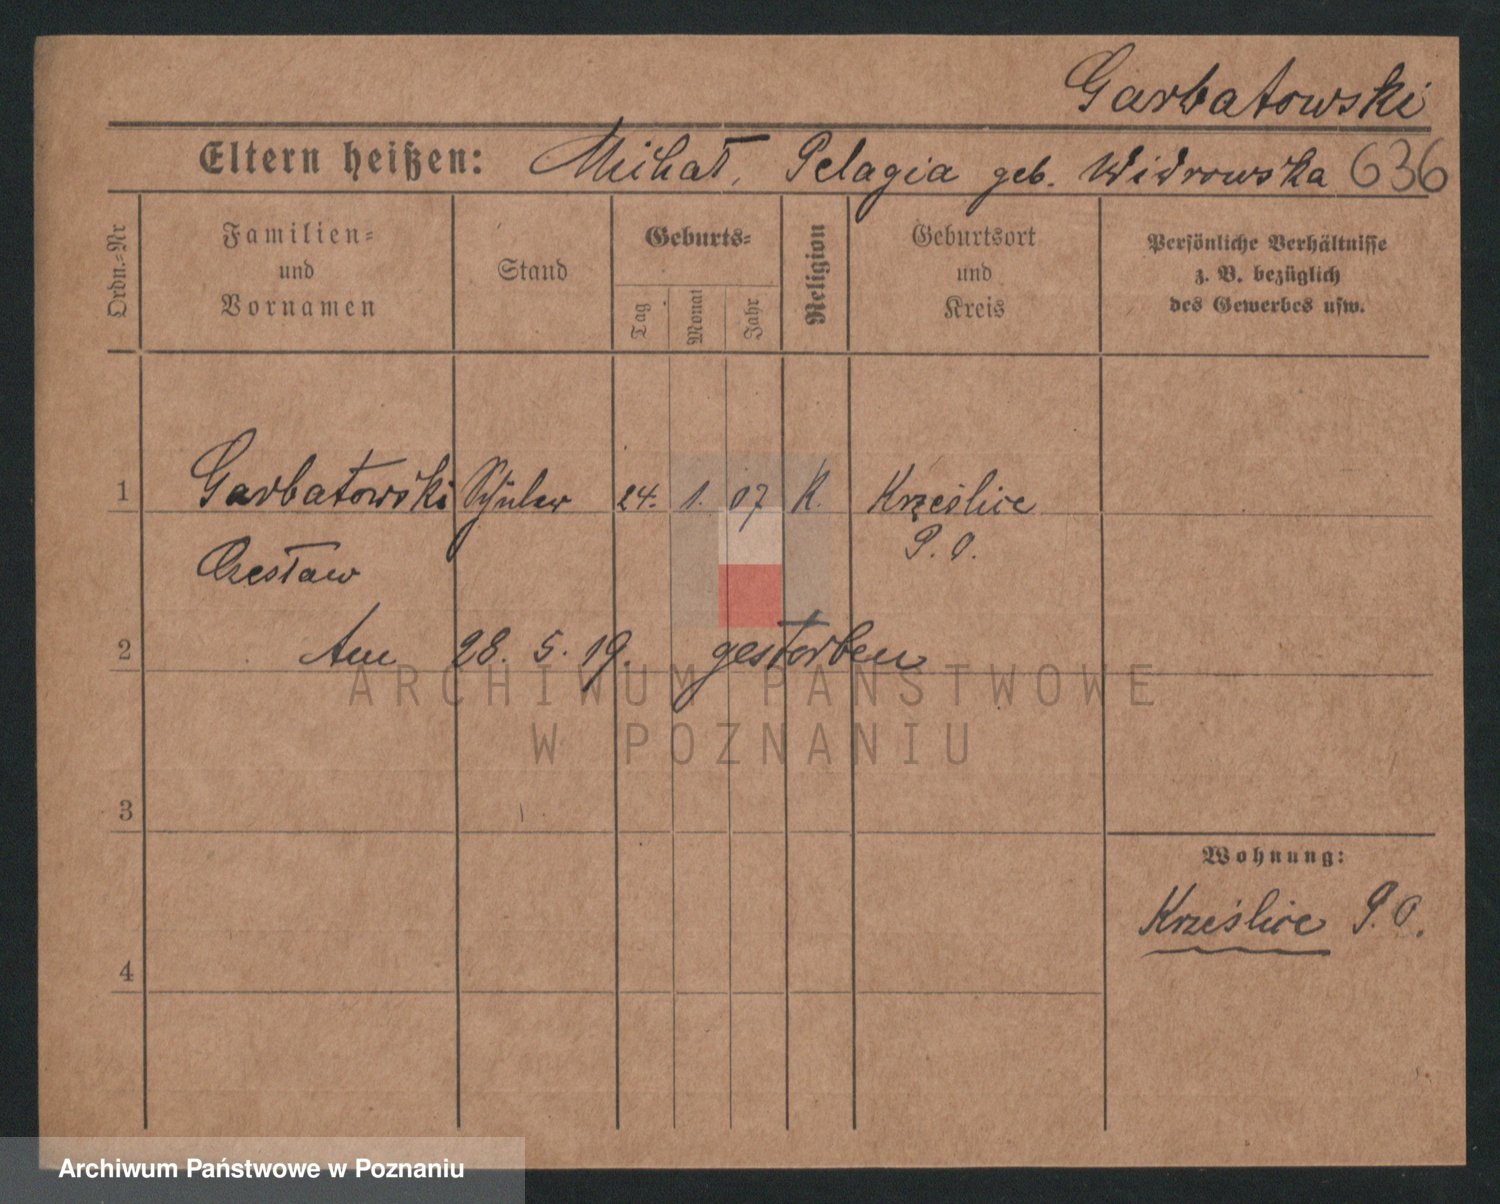 Garbatowski
Eltern heißen: Michał, Pelagia geb. Widrowska 636
Ordn.-Nr
Familien-
und
Vornamen
Stand
Geburts-
Tag
Monat
Jahr
Religion
Geburtsort
und
Kreis
Persönliche Verhältnisse
z. B. bezüglich
des Gewerbes usw.
1 Garbatowski Schüler 24. 1. 07 K. Krześlice
P. O.
Czesław
2 Am 28. 5. 19. gestorben
ARCHIWUM PAŃSTWOWE
W POZNANIU
3
Wohnung:
Krześlice P. O.
4
Archiwum Państwowe w Poznaniu